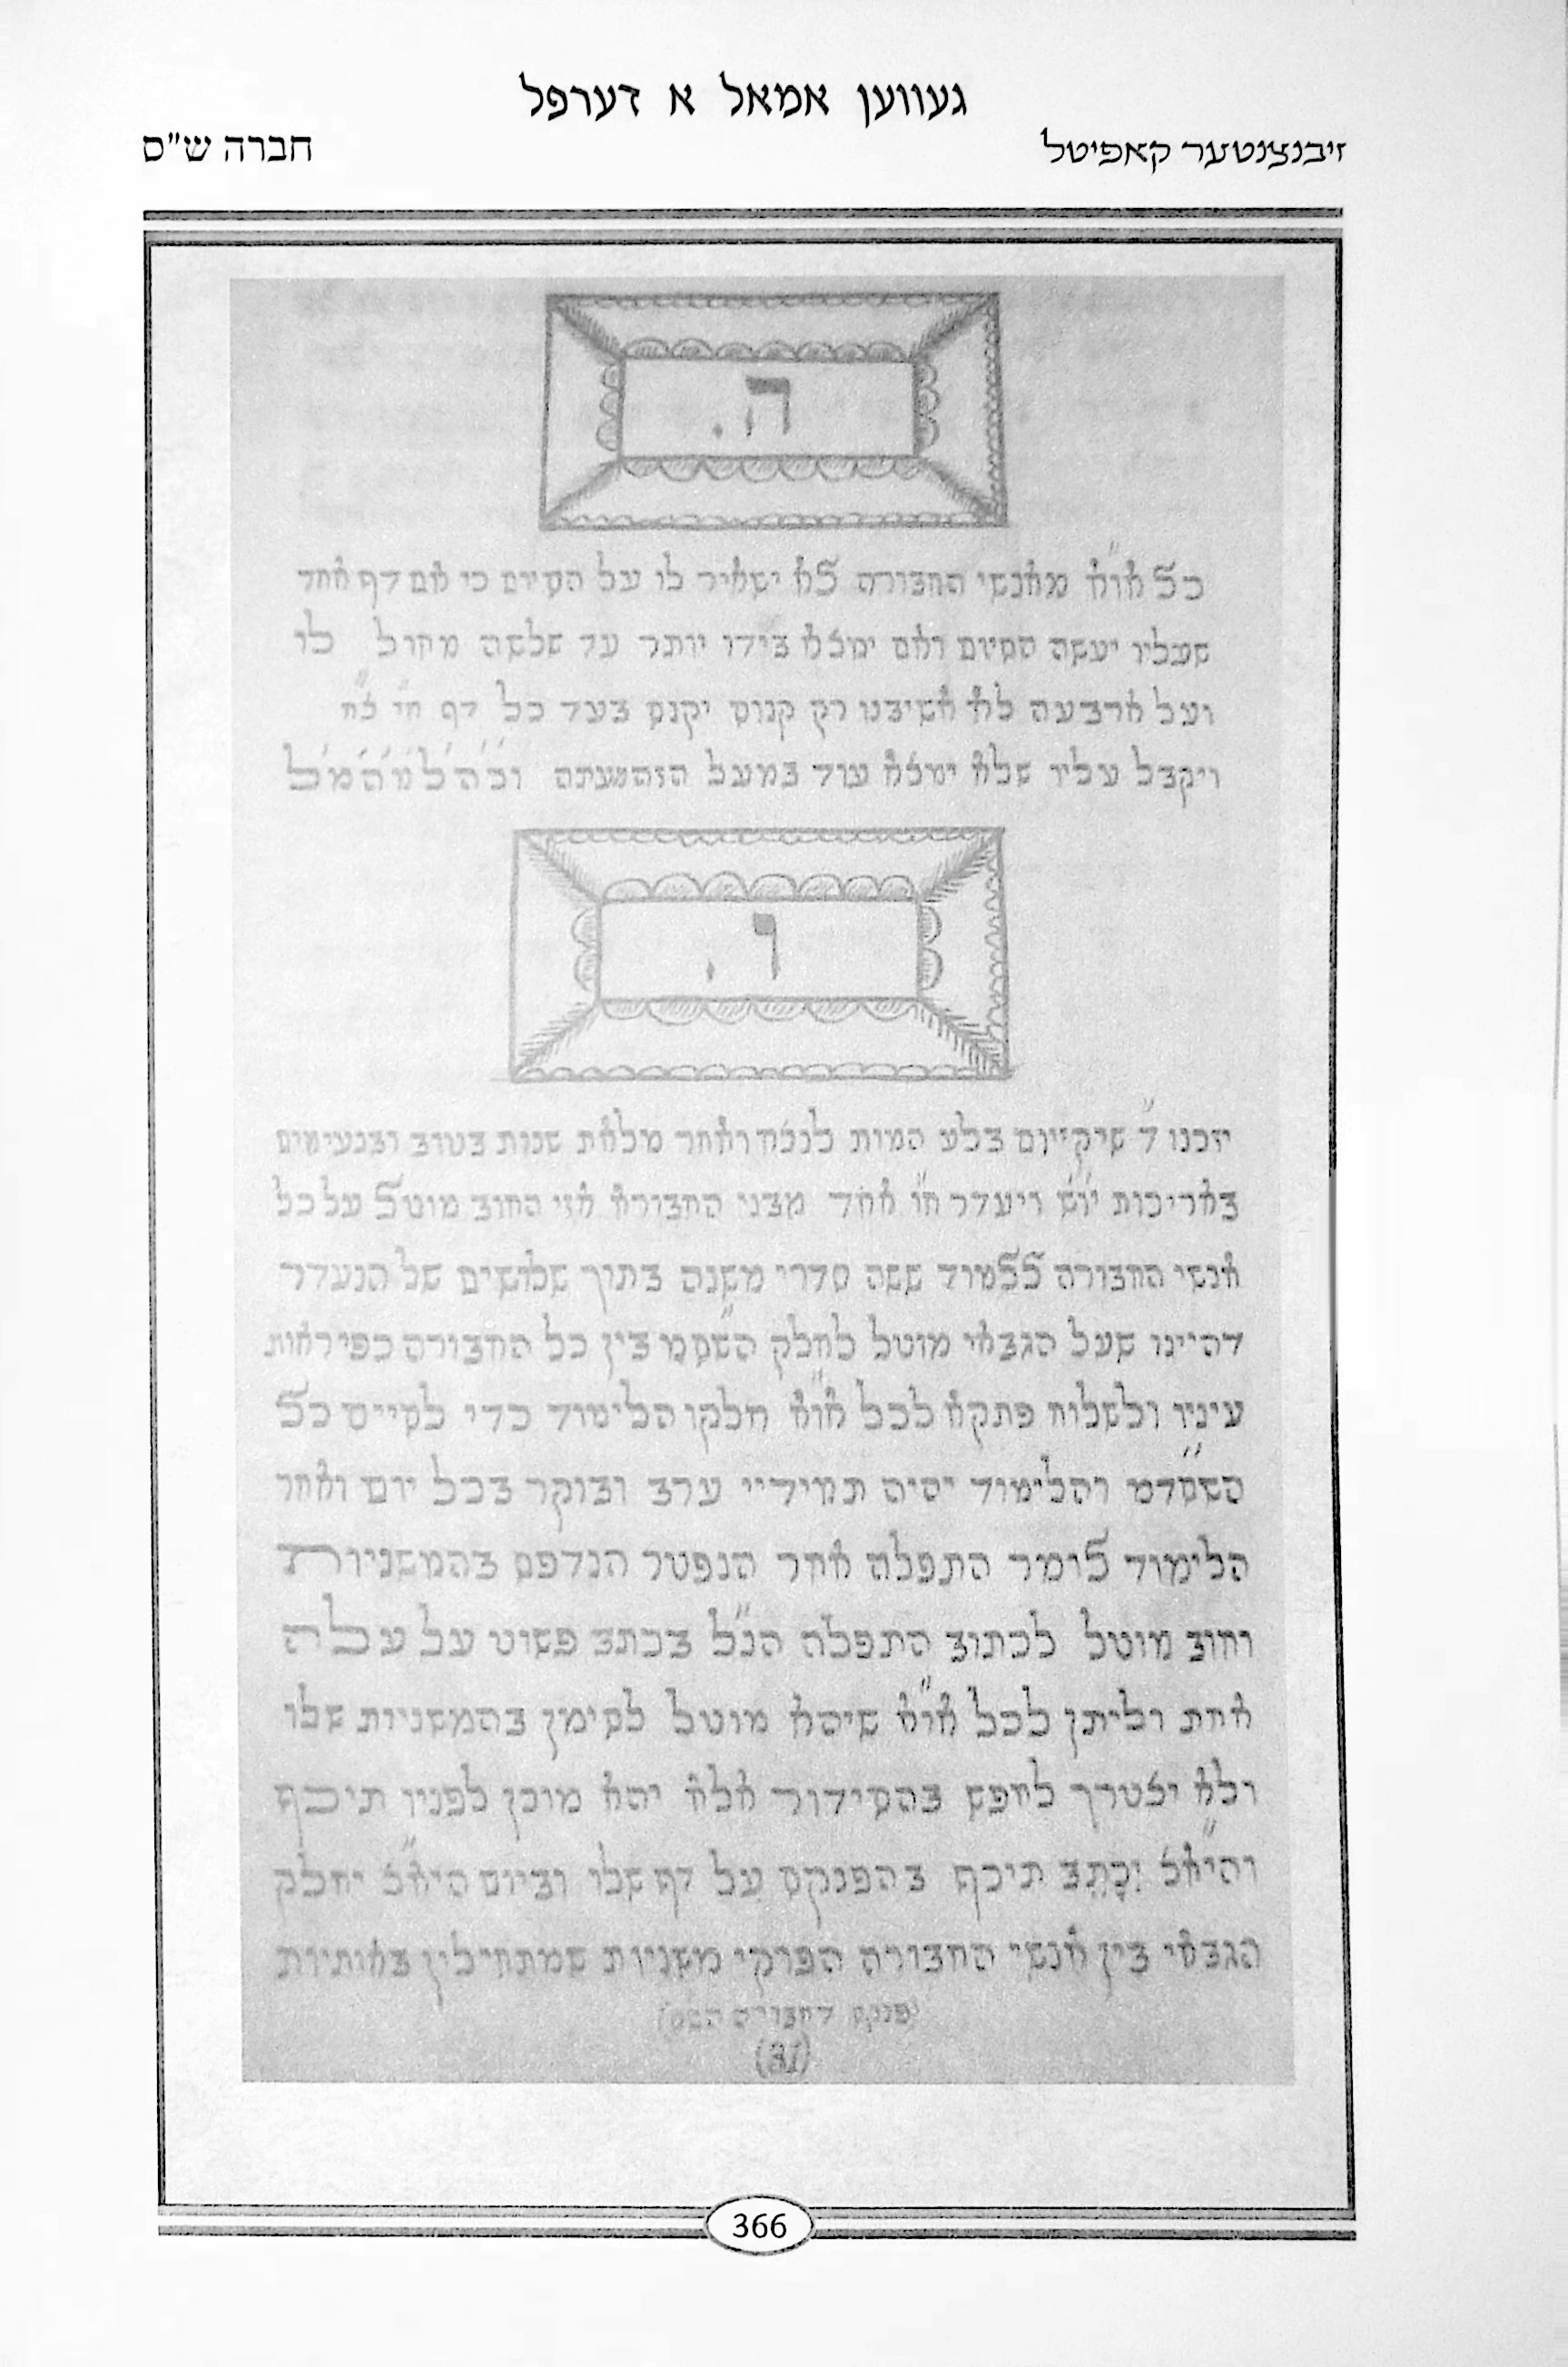 געווען אמאל א דערפל
זיבנצנטער קאפיטל
חברה ש"ס
ה.
כל או"א מאנשי החבורה לא ישאיר לו על הסיום כי אם דף אחד
שעליו יעשה הסיום ואם ימצא בידו יותר עד שלשה מחול לו
ועל ארבעה לא אשיבנו רק קנוס יקנס בעד כל דף
ויקבל עליו שלא ימצא עוד במעל הזה
ו.
יזכנו ד' שיקויים בלע המות לנצח ואחר מלאת שנות בטוב ובנעימים
באריכות ויעדר ח"ו אחד מבני החבורא אזי החוב מוטל על כל
אנשי החבורה ללמוד ששה סדרי משנה בתוך שלשים של הנעדר
דהיינו שעל הגבאי מוטל לחלק בין כל החבורה כפי ראות
עיניו ולשלוח פתקא לכל או"א חלקו הלימוד כדי לסיים כל
והלימוד יהיה תמידיי ערב ובוקר בכל יום ואחר
הלימוד לומר התפלה אחר הנפטר הנדפס בהמשניות
וחוב מוטל לכתוב התפלה הנ"ל בכתב פשוט על עלה
אחת וליתן לכל או"א שיהא מוטל לסימן בהמשניות שלו
ולא יצטרך לחפש בהסידור אלא יהא מוכן לפניו תיכף
והיא"צ יכתב תיכף בהפנקס על דף שלו וביום היא"צ יחלק
הגבאי בין אנשי החבורה הפרקי משניות שמתחילין באותיות
(פנקס דחבורה הש"ס)
366